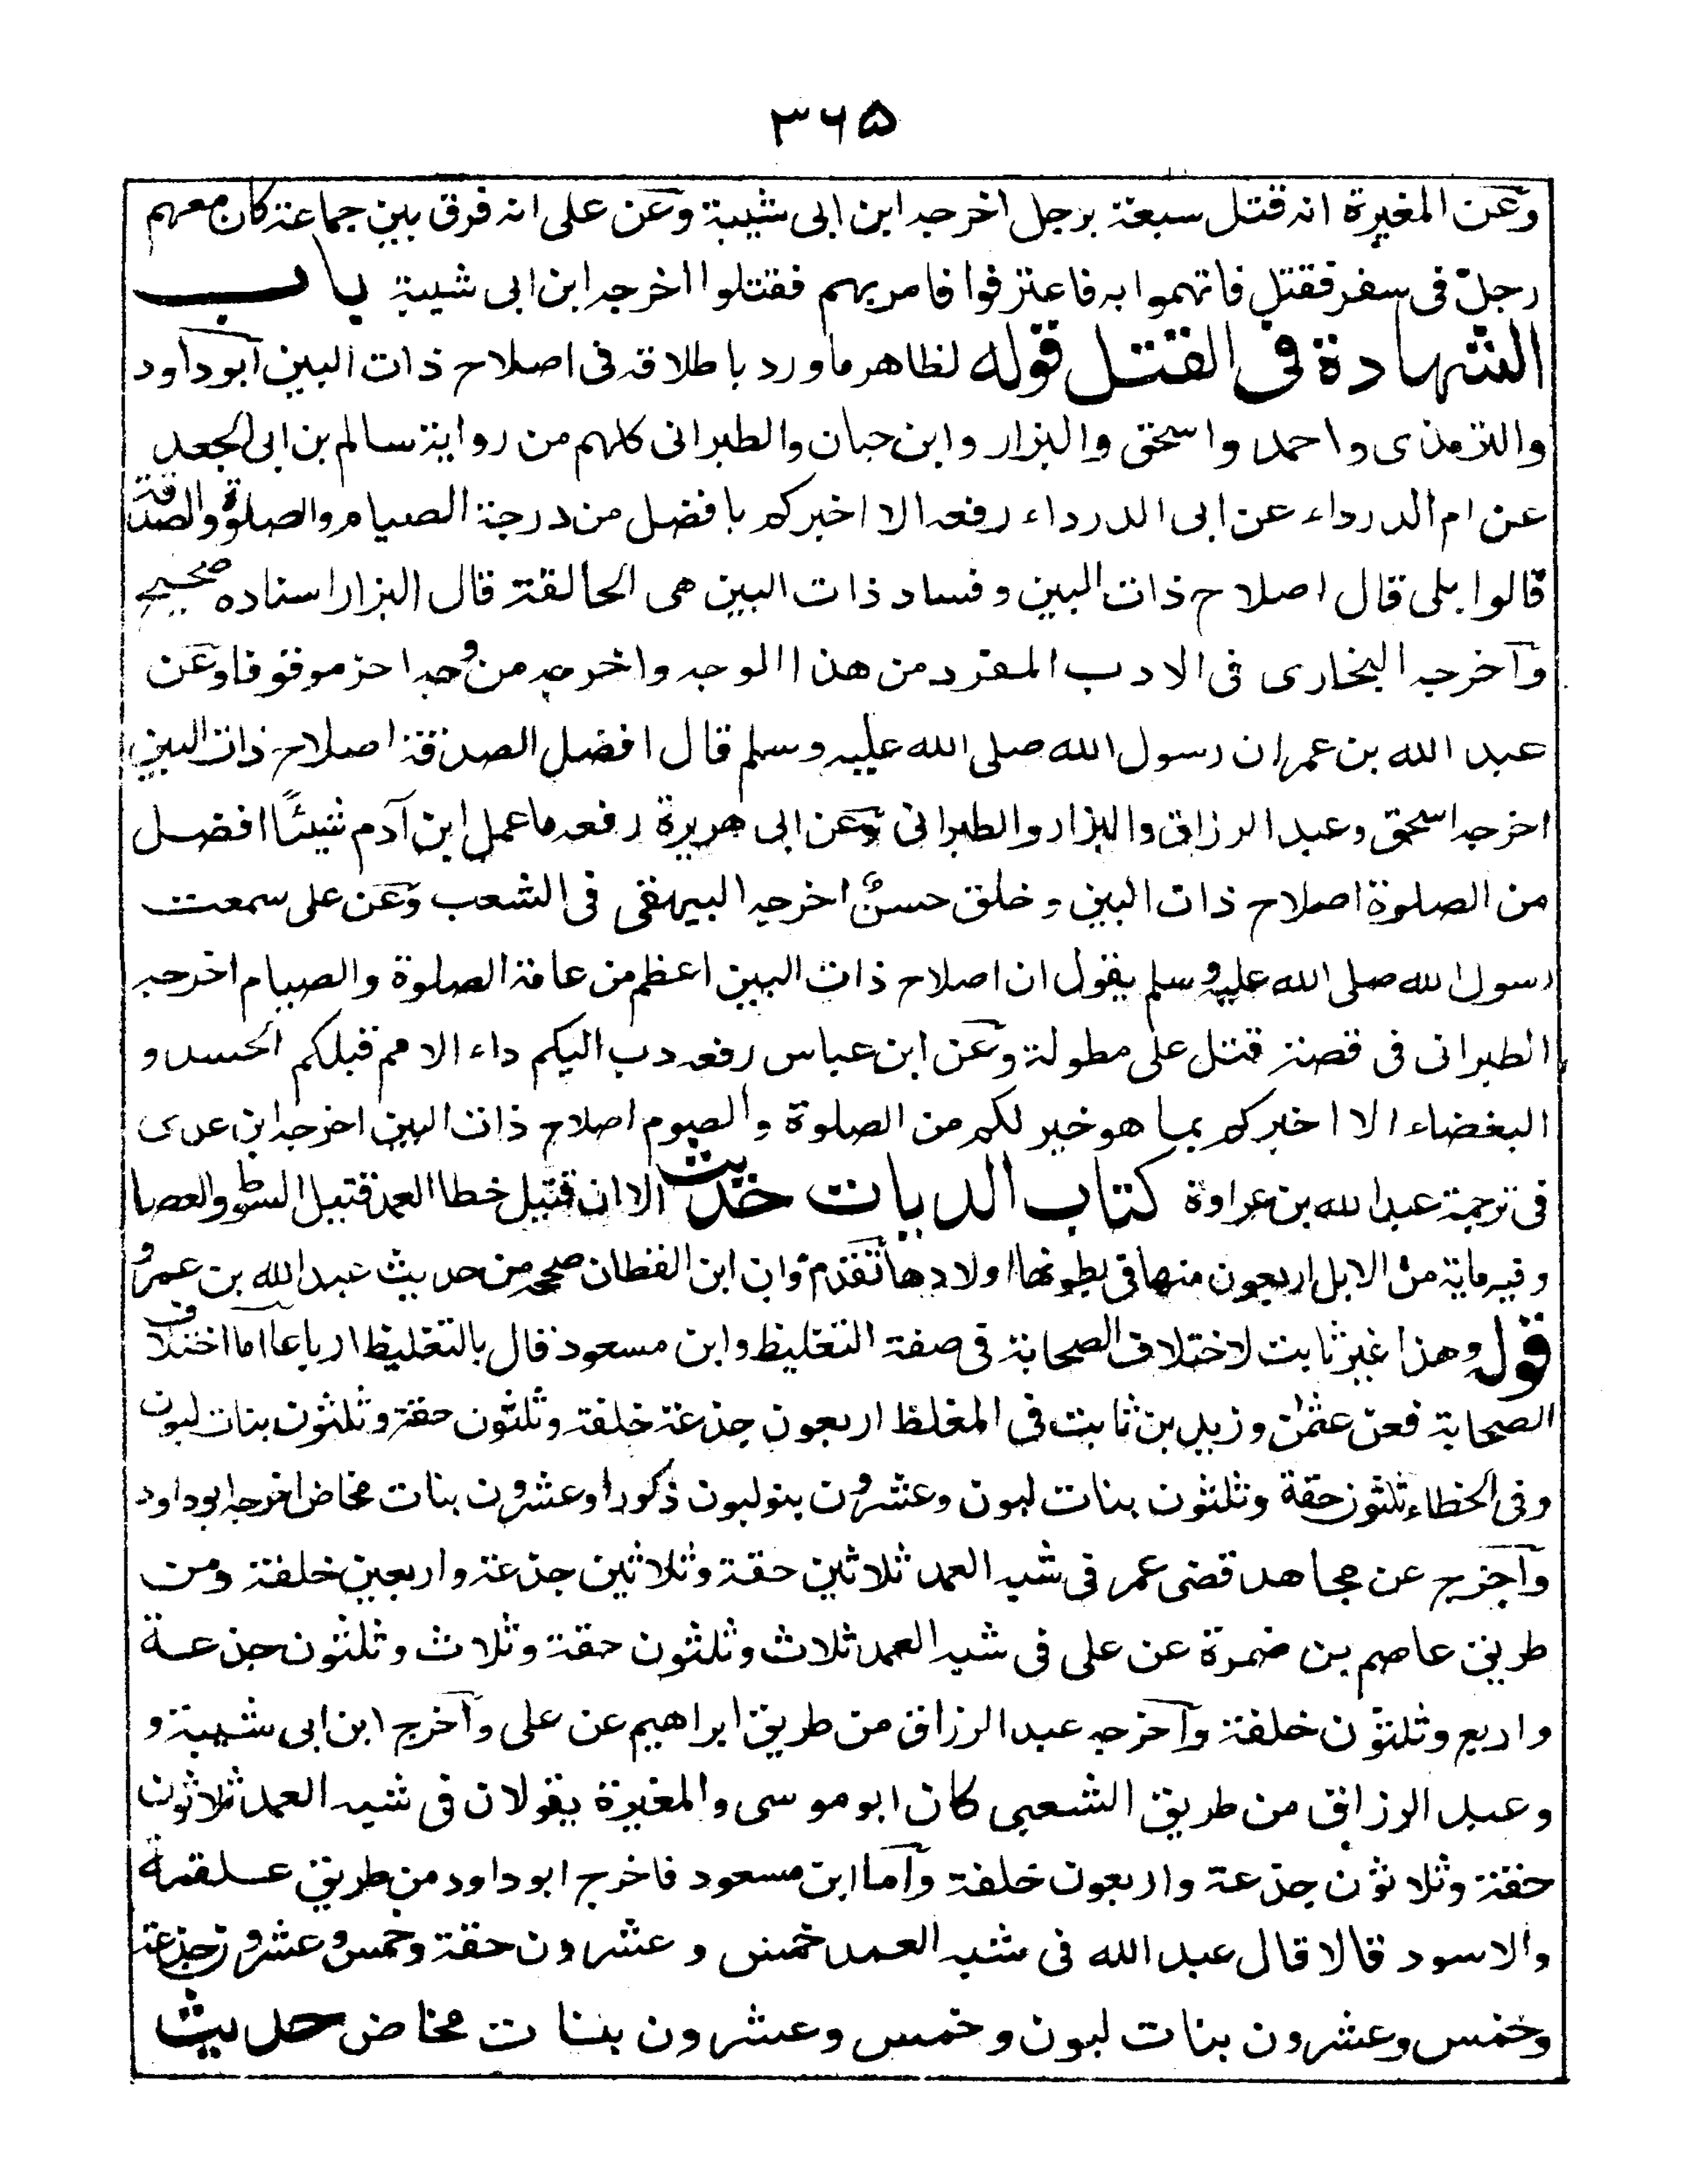 ۳۶۵
وعن المغيرة انه قتل سبعة برجل اخرجه ابن ابى شيبة وعن على انه فرق بين جماعة كان معهم
رجل فى سفر فقتل فاتهموا به فاعترفوا فامر بهم فقتلوا اخرجه ابن ابى شيبة باب
الشهادة فى القتل قوله لظاهر ما ورد باطلاقه فى اصلاح ذات البين ابو داود
والترمذى واحمد واسحق والبزار وابن حبان والطبرانى كلهم من رواية سالم بن ابى الجعد
عن ام الدرداء عن ابى الدرداء رفعه الا اخبركم بافضل من درجة الصيام والصلوة والصدقة
قالوا بلى قال اصلاح ذات البين وفساد ذات البين هى الحالقة قال البزار اسناده صحيح
وآخرجه البخارى فى الادب المفرد من هذا الوجه واخرجه من وجه اخر موقوفا وعن
عبد الله بن عمر ان رسول الله صلى الله عليه وسلم قال افضل الصدقة اصلاح ذات البين
اخرجه اسحق وعبد الرزاق والبزار والطبرانى وعن ابى هريرة رفعه ما عمل ابن آدم شيئًا افضل
من الصلوة اصلاح ذات البين وخلق حسنٌ اخرجه البيهقى فى الشعب وعن على سمعت
رسول الله صلى الله عليه وسلم يقول ان اصلاح ذات البين اعظم من عامة الصلوة والصيام اخرجه
الطبرانى فى قصة قتل على مطولة وعن ابن عباس رفعه دب اليكم داء الامم قبلكم الحسد و
البغضاء الا اخبركم بما هو خير لكم من الصلوة والصوم اصلاح ذات البين اخرجه ابن عدى
فى ترجمة عبد الله بن عرادة كتاب الديات حديث الا ان قتيل خطا العمد قتيل السوط والعصا
وفيه ماية من الابل اربعون منها فى بطونها اولادها تقدم وان ابن القطان صححه من حديث عبد الله بن عمرو
قوله وهذا غير ثابت لاختلاف الصحابة فى صفة التغليظ وابن مسعود قال بالتغليظ ارباعا اما اختلاف
الصحابة فعن عثمٰن وزيد بن ثابت فى المغلظ اربعون جذعة خلفة وثلثون حقة وثلثون بنات لبون
وفى الخطاء ثلثون حقة وثلثون بنات لبون وعشرون بنو لبون ذكورا وعشرون بنات مخاض اخرجه ابو داود
وآخرج عن مجاهد قضى عمر فى شبه العمد ثلاثين حقة وثلاثين جذعة واربعين خلفة ومن
طريق عاصم بن ضمرة عن على فى شبه العمد ثلاث وثلثون حقة وثلاث وثلثون جذعة
واربع وثلثون خلفة وآخرجه عبد الرزاق من طريق ابراهيم عن على وآخرج ابن ابى شيبة و
وعبد الرزاق من طريق الشعبى كان ابو موسى والمغيرة يقولان فى شبه العمد ثلاثون
حقة وثلاثون جذعة واربعون خلفة وآما ابن مسعود فاخرج ابو داود من طريق علقمة
والاسود قالا قال عبد الله فى شبه العمد خمس وعشرون حقة وخمس وعشرون جذعة
وخمس وعشرون بنات لبون وخمس وعشرون بنات مخاض حديث